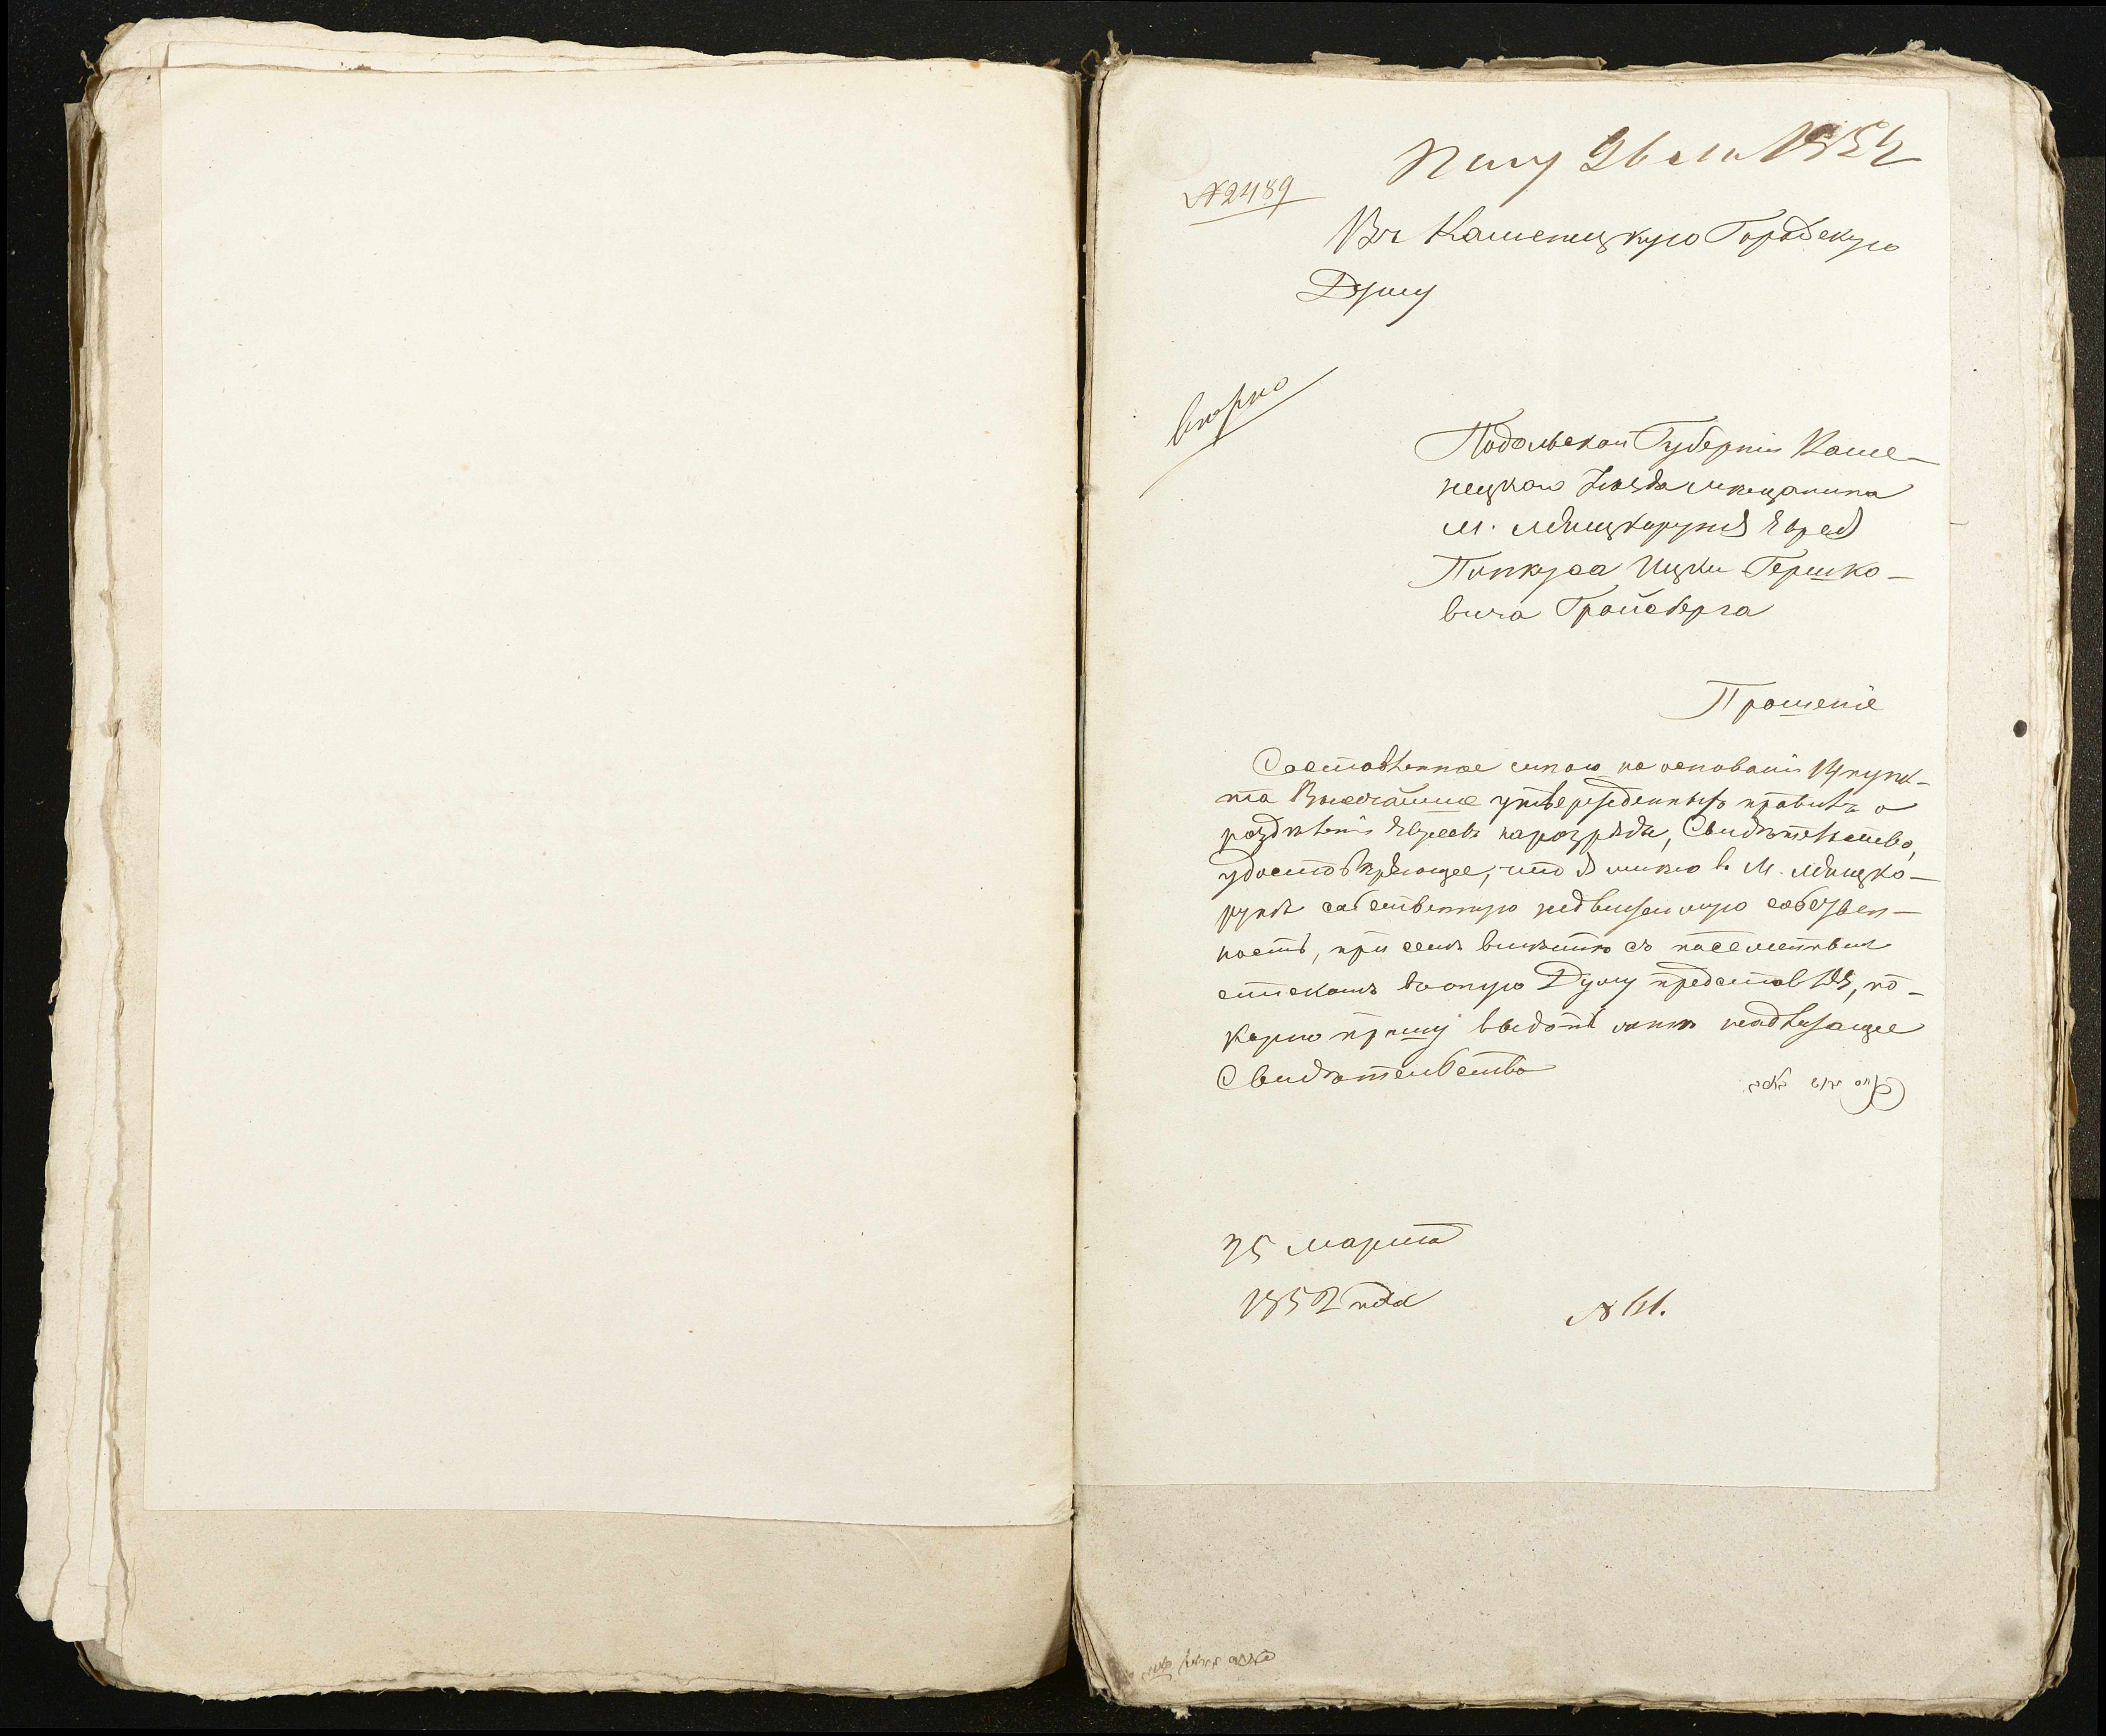 № 2489
Въ Каменецкую Городскую
Думу
вѣрно
Подольской Губерніи Каме-
нецкаго Уѣзда мѣщанина
м. Лянцкоруня Еврея
Пинкуса Ицки Гершко-
вича Гройсберга
Прошеніе
Составленное мною на основаніи 14 пунк-
та Высочайше утвержденныхъ правилъ о
раздѣленіи Евреевъ на разряды, Свидѣтельство,
удостовѣряющее, что я имѣю в М. Лянцко-
рунѣ собственную недвижимую собствен-
ность, при семъ вмѣстѣ съ
въ оную Думу представляя, по-
корно прошу выдать мнѣ надлежащее
Свидѣтельство
25 марта
1852 года
№ 61.